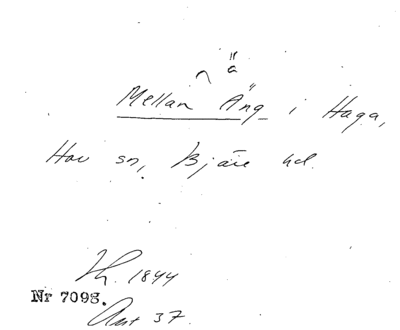 ä
Mellan Äng i Haga,
Hov sn, Bjäre hd.
Th. 1844
Nr 7098.
37